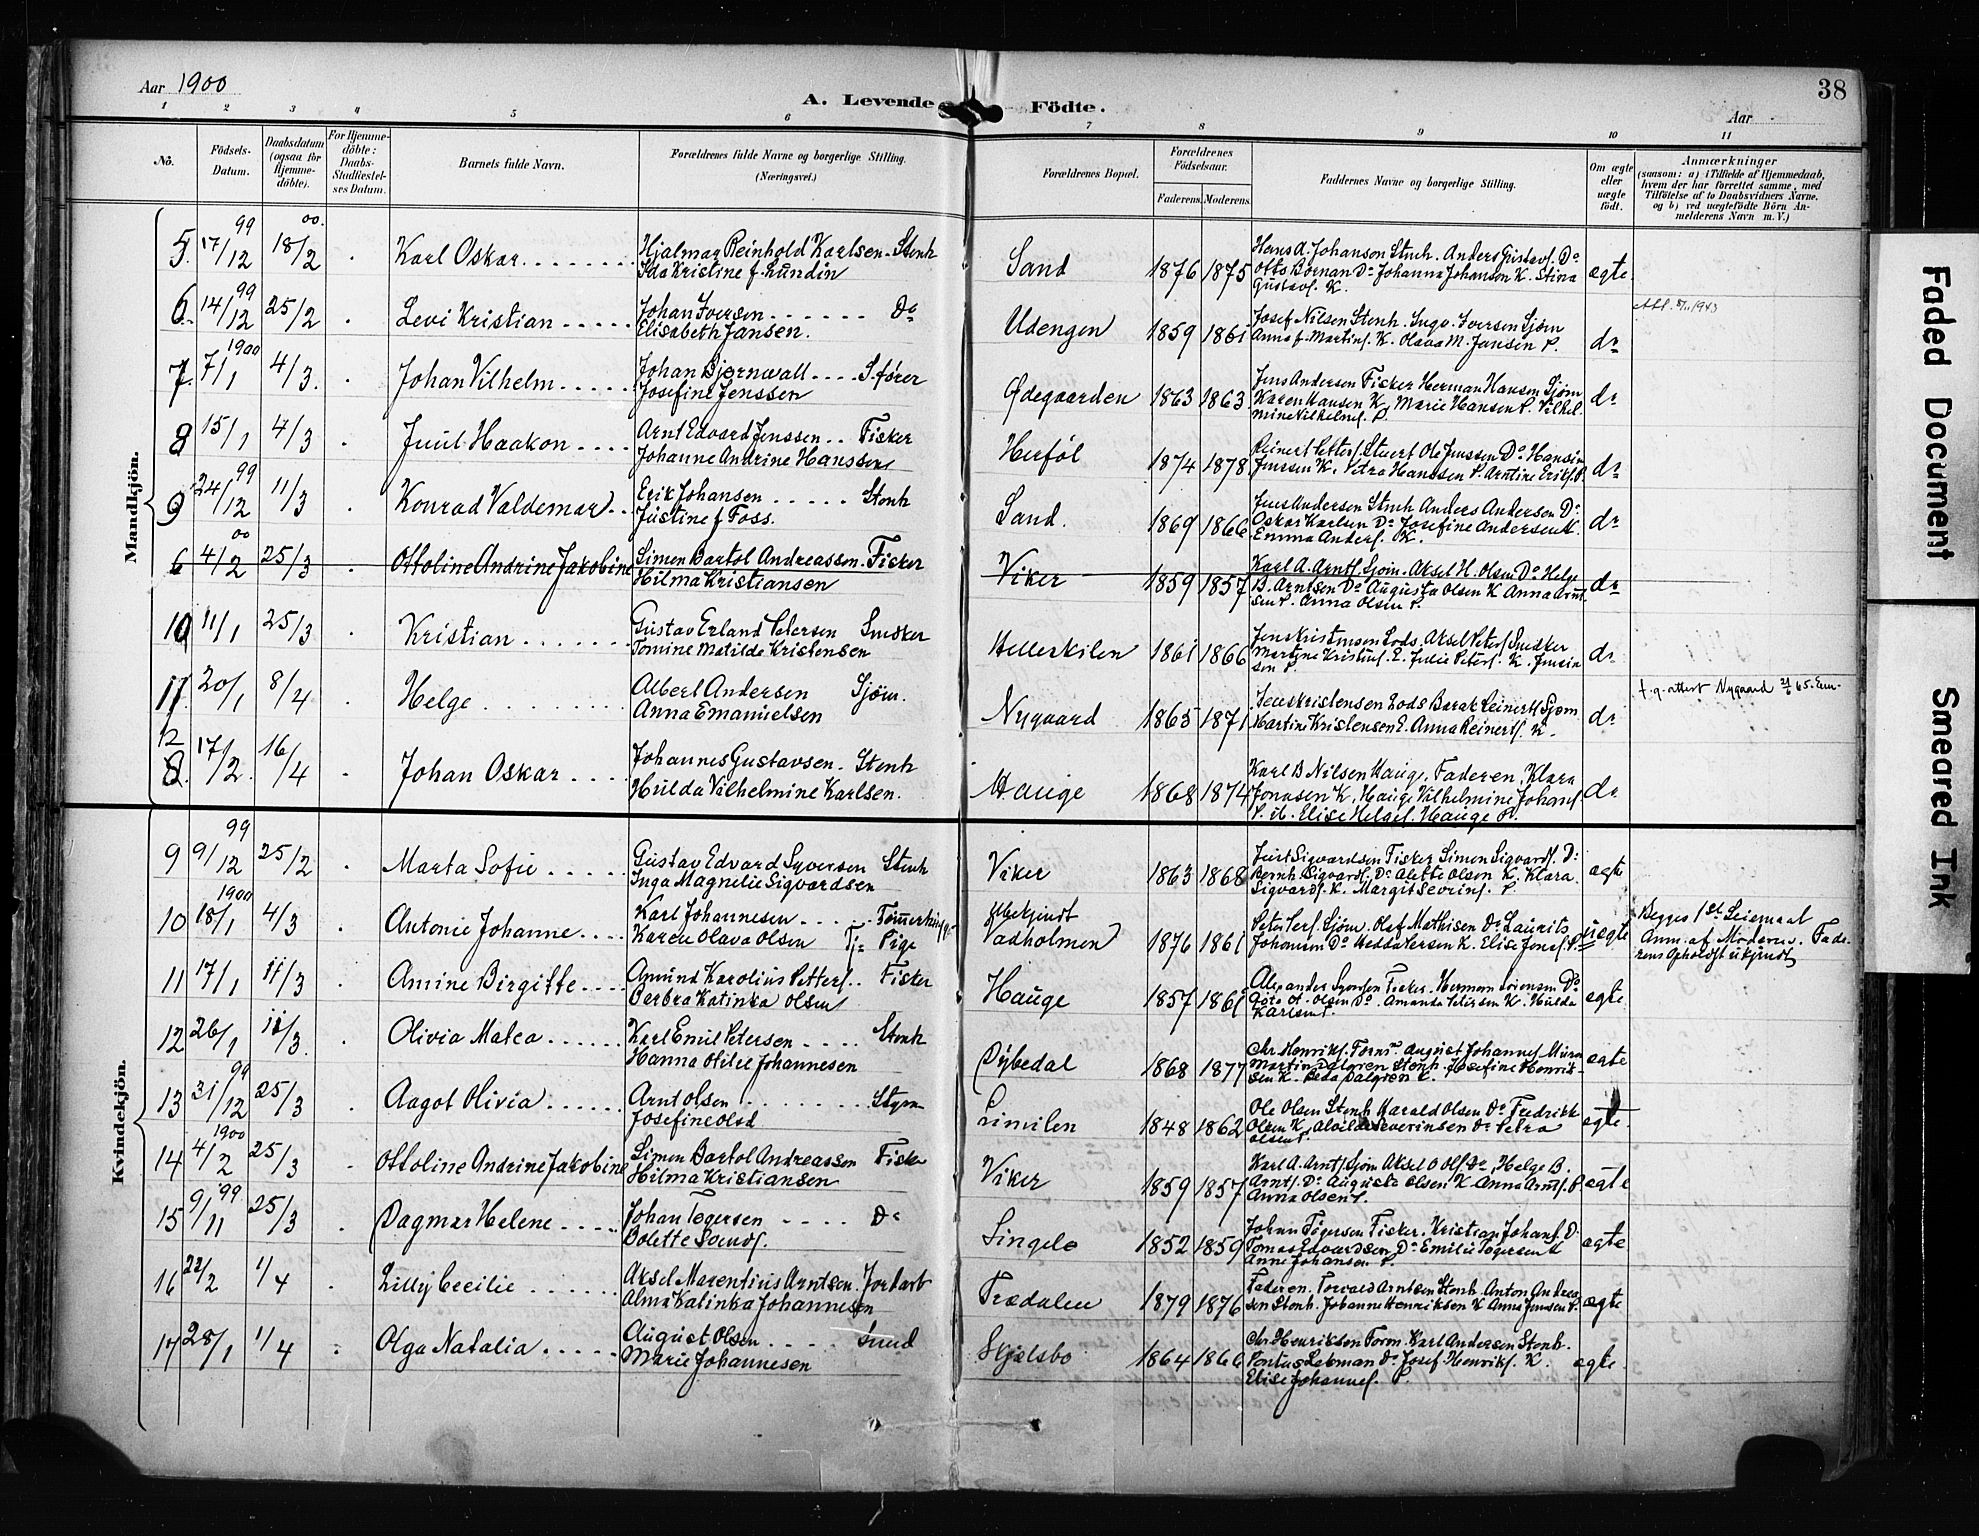 Aar 1900
A. Levende Födte.
38
Aar
1 2 3 4 5 6 7 8 9 10 11
No.
Födsels-Datum.
Daabsdatum (ogsaa for Hjemmedöbte).
For Hjemmedöbte: Daabs-Stadfæstelses Datum.
Barnets fulde Navn.
Forældrenes fulde Navne og borgerlige Stilling. (Næringsvei.)
Forældrenes Bopæl.
Forældrenes Födselsaar.
Faderens. Moderens.
Faddernes Navne og borgerlige Stilling.
Om ægte eller uægte födt.
Anmærkninger
(saasom: a) i Tilfælde af Hjemmedaab, hvem der har forrettet samme, med Tilföielse af to Daabsvidners Navne, og b) ved uægtefödte Börn Anmelderens Navn m. V.)
Mandkjön.
5. 17/12 99 18/2 00. Karl Oskar Hjalmar Reinhold Karlsen. Stenh Sand 1876 1875 Hans A. Johanson Stenh. Anders Gustavs. Do ægte
Ida Kristine f. Lundin Otto Bornan Do Johanna Johanson K. Stina
Gustavs. K.
6. 14/12 99 25/2 Levi Kristian Johan Iversen Do Udengen 1859 1861 Josef Nilsen Stenh. Ingv. Iversen Sjøm do
Elisabeth Jansen. Anna f. Martins. K. Olava M. Jansen P.
7. 7/1 1900 4/3. Johan Vilhelm Johan Bjørnwall S.fører Ødegaarden 1863 1863 Jens Andersen Fisker Herman Hansen Sjøm do
Josefine Jenssen Karen Hansen K. Marie Hansen P. Vilhelmine Vilhelms. P.
8 15/1 4/3 Juul Haakon Arnt Edvard Jenssen Fisker Herføl 1874 1878 Reinert Petters. Stuert Ole Jenssen Do Hansin do
Johanne Andrine Hanssen Jenssen K. Petra Hanssen P. Arntine Eriks. P.
9 24/12 99 11/3 Konrad Valdemar Erik Johansen Stenh Sand. 1869 1866 Jens Andersen Stenh Anders Andersen Do do
Justine f Foss. Oskar Karlsen Do Josefine Andersen K.
Emma Anders. K.
6 4/2 00 25/3 Ottoline Andrine Jakobine Simen Bartol Andreassen Fisker Viker 1859 1857 Karl A. Arnts. Sjøm. Aksel H. Olsen Do Helge do
Hilma Kristiansen B. Arntsen Do Augusta Olsen K Anna Arntsen P. Anna Olsen P.
10 11/1 25/3 Kristian Gustav Erland Petersen Snedker Hellerkilen 1861 1866 Jens Kristensen Lods. Aksel Peters. Snedker do
Tomine Matilde Kristensen Martine Kristens. E. Julie Peters. K.
11. 20/1 8/4 Helge Albert Andersen Sjøm. Nygaard 1865 1871 Jens Kristensen Lods Barak Reinerts Sjøm do
Anna Emanuelsen Martine Kristensen E. Anna Reinerts. K.
12 17/2. 16/4 Johan Oskar Johannes Gustavsen. Stenh Hauge 1868 1874 Karl B Nilsen Hauge, Faderen, Klara do
Hulda Vilhelmine Karlsen. Jonasen K. Hauge Vilhelmine Johans.
Elise Helges. Hauge P.
Kvindekjön.
9 9/12 99 25/2 Marta Sofie Gustav Edvard Syversen Stenh Viker 1863 1868 Juel Sigvardsen Fisker Simen Sigvards. Do ægte
Inga Magnelie Sigvardsen Bernh. Sigvards. Do Alette Olsen K. Klara
Sigvards. K. Margit Severins. P
10 18/1 1900 4/3 Antonie Johanne Karl Johannesen Ubekjendt 1876 1861 Peter Pers. Sjøm. Olaf Mathisen Do Laurits uægte
Karen Olava Olsen Tj. Pige Vadholmen Johansen Do Hedda Persen K. Elise Jonas. P.
Begges 1st Leiermaal
Anm. af Moderen. Faderens Ophold ukjendt
11 17/1 11/3 Amine Birgitte Amund Karolius Petters. Fisker Hauge 1857 1861 Alexander Syversen Fisker. Herman Sørensen Do ægte
Berbra Katinka Olsen Gøte A. Olsen Do. Amanda Petersen K. Hulda
Karlsen P.
12 26/1 11/3. Olivia Matea Karl Emil Petersen Stenh Dybedal 1868 1877 Chr. Henriks. Form. August Johannes. Murer ægte
Hanna Otilie Johannesen Martin Dalgren Stenh. Josefine Henriksen K. Beda Dalgren K.
13 31/12 99 25/3 Aagot Olivia Arnt Olsen Styrm 1848 1862 Ole Olsen Stenh Harald Olsen Do Fredrikk ægte
Josefine Olsd Olsen K. Severinsen Do Petra
Olsen P.
14 4/2 1900 25/3 Ottoline Andrine Jakobine Simen Bartol Andreassen Fisker Viker 1859 1857 Karl A. Arnts. Sjøm Aksel O Ols. Do, Helge B. ægte
Hilma Kristiansen Arnts. Do Augusta Olsen K Anna Arnts. P.
Anna Olsen P.
15 9/11 99 25/3 Dagmar Helene Johan Togersen Do Singelo 1852 1859 Johan Togersen Fisker. Kristian Johans. Do ægte
Bolette Svends. Tomas Edvardsen Do Emilie Togersen K
Anne Johansen P.
16 22/2 1/4 Lilly Cecilie Aksel Marentius Arntsen. Jordarb Trædalen 1879 1876 Faderen. Torvald Arntsen Stenh Anton Andreasen Stenh. Johanne Henriksen K Anna Jensen P. ægte
Alma Katinka Johannesen
17 28/1 1/4 Olga Natalia August Olsen Smed Skjelsbo 1864 1866 Chr. Henriksen Form. Karl Andersen Stenh. ægte
Marie Johannesen Pontus Lekman Do Josef Henriks. K.
Elise Johannes. P.
Faded Document
Smeared Ink